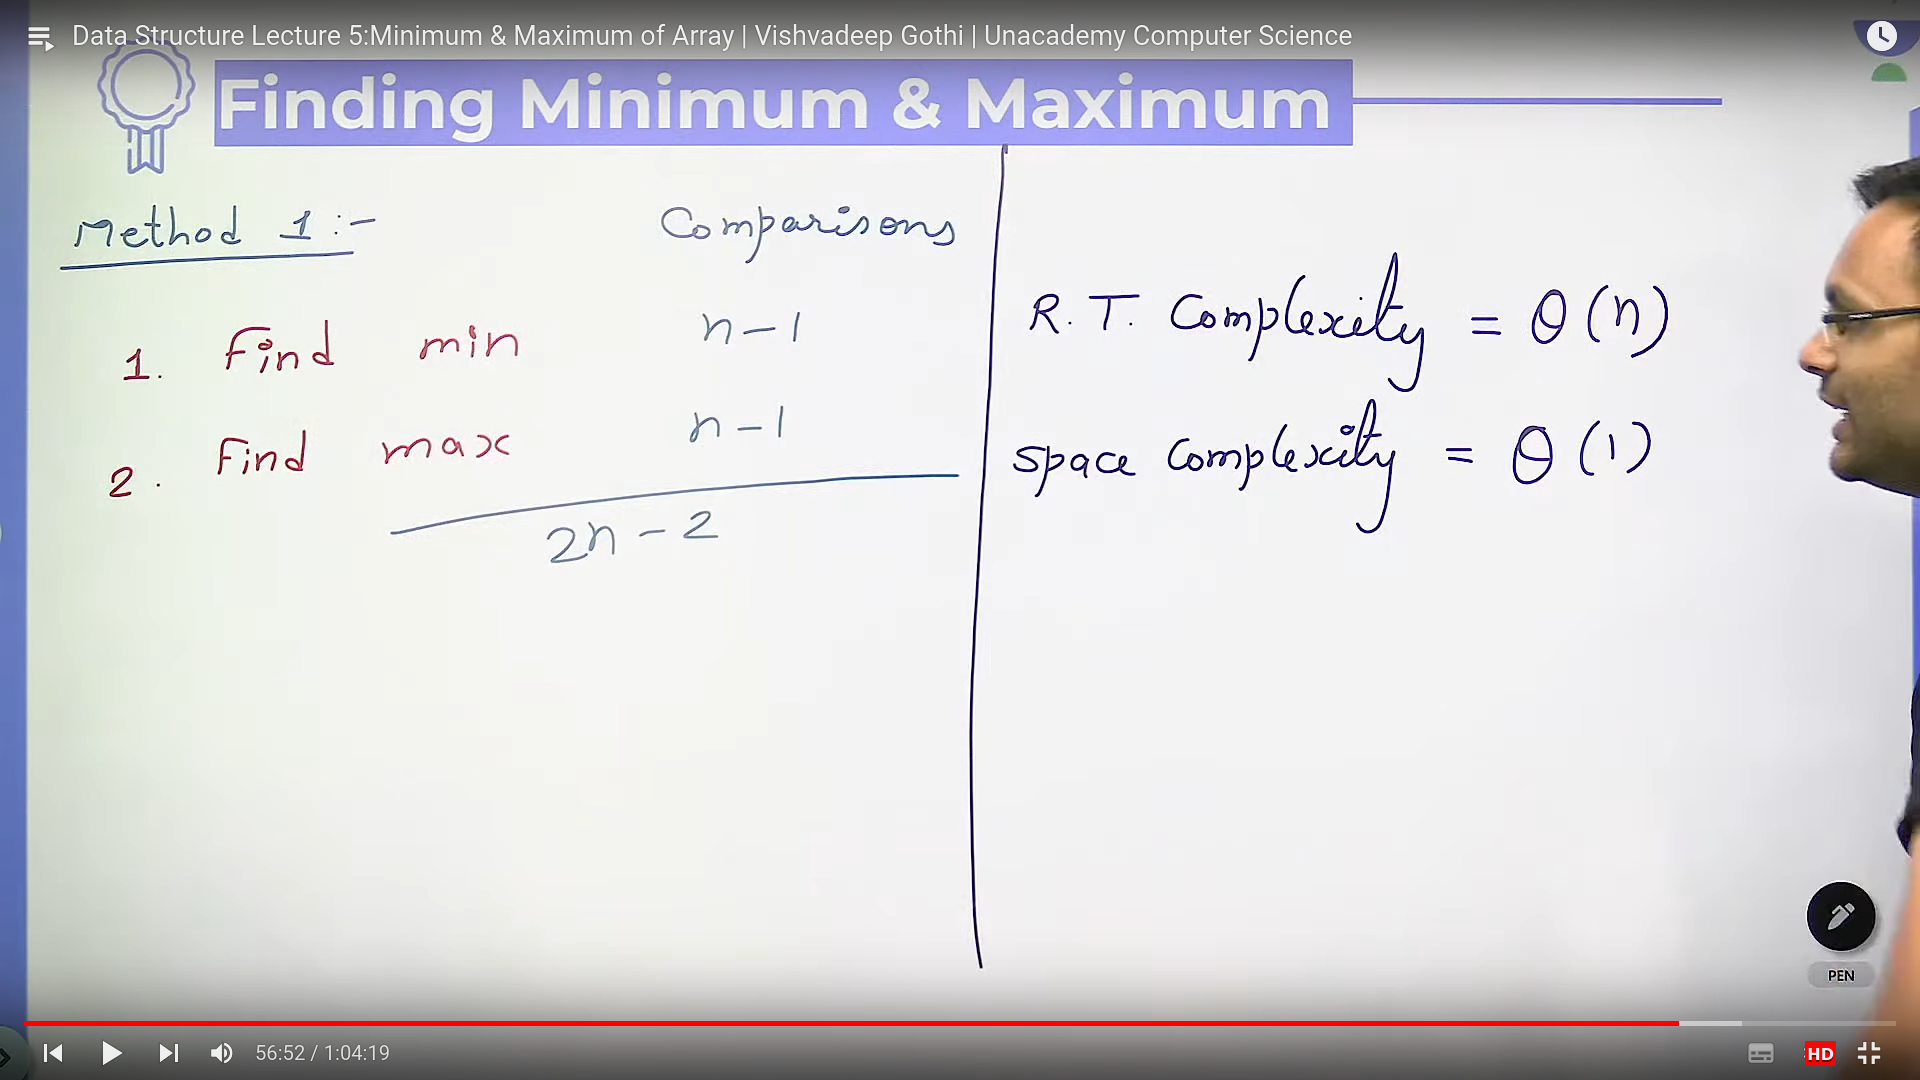 Data Structure Lecture 5:Minimum & Maximum of Array | Vishvadeep Gothi | Unacademy Computer Science
Finding Minimum & Maximum
Method 1:-
Comparisons
1. Find min n-1
2. Find max n-1
2n-2
R.T. Complexity = θ(n)
Space Complexity = θ(1)
PEN
56:52 / 1:04:19
HD